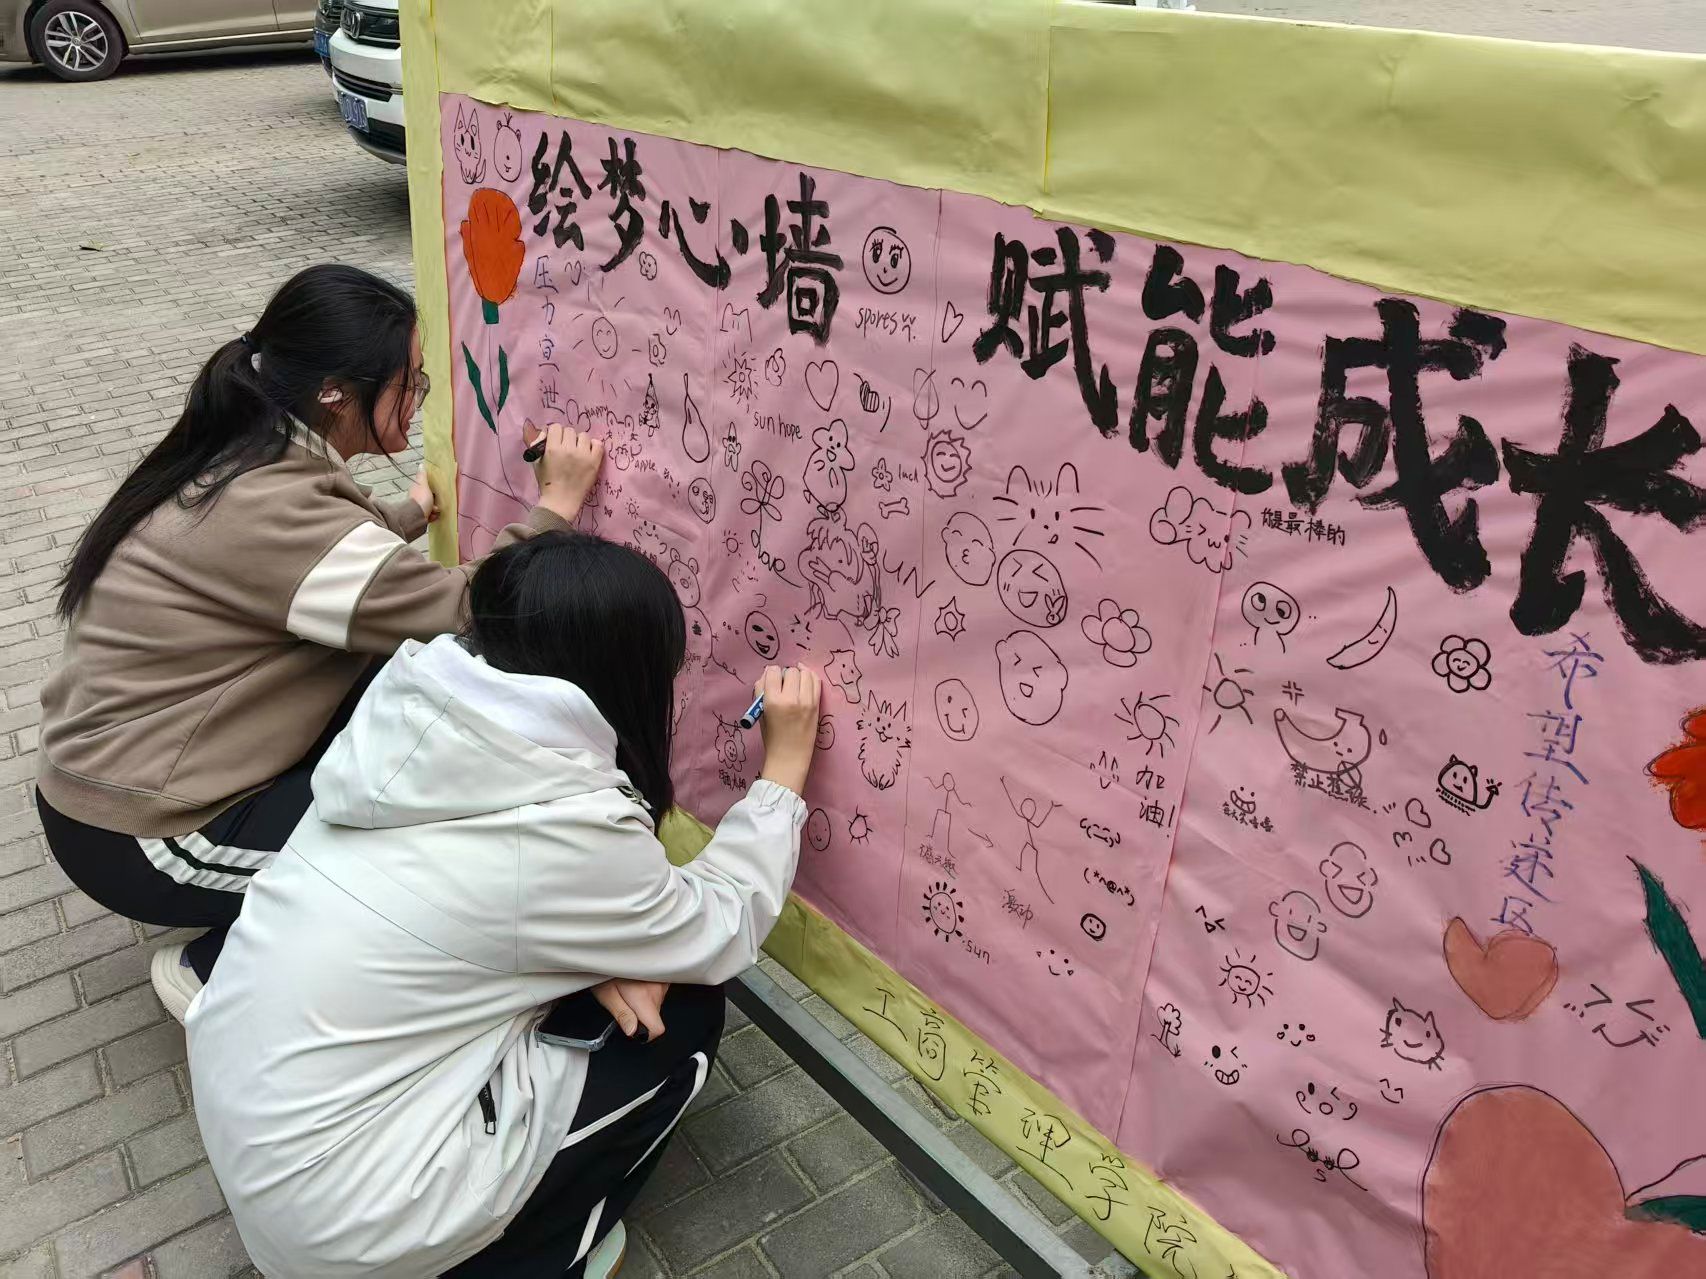 绘梦心墙 赋能成长
压力宣泄
希望传递区
spores
happy
sun hope
apple
luck
love
SUN
偍最棒的
加油!
禁止蕉绿
激动
sun
工商管理学院